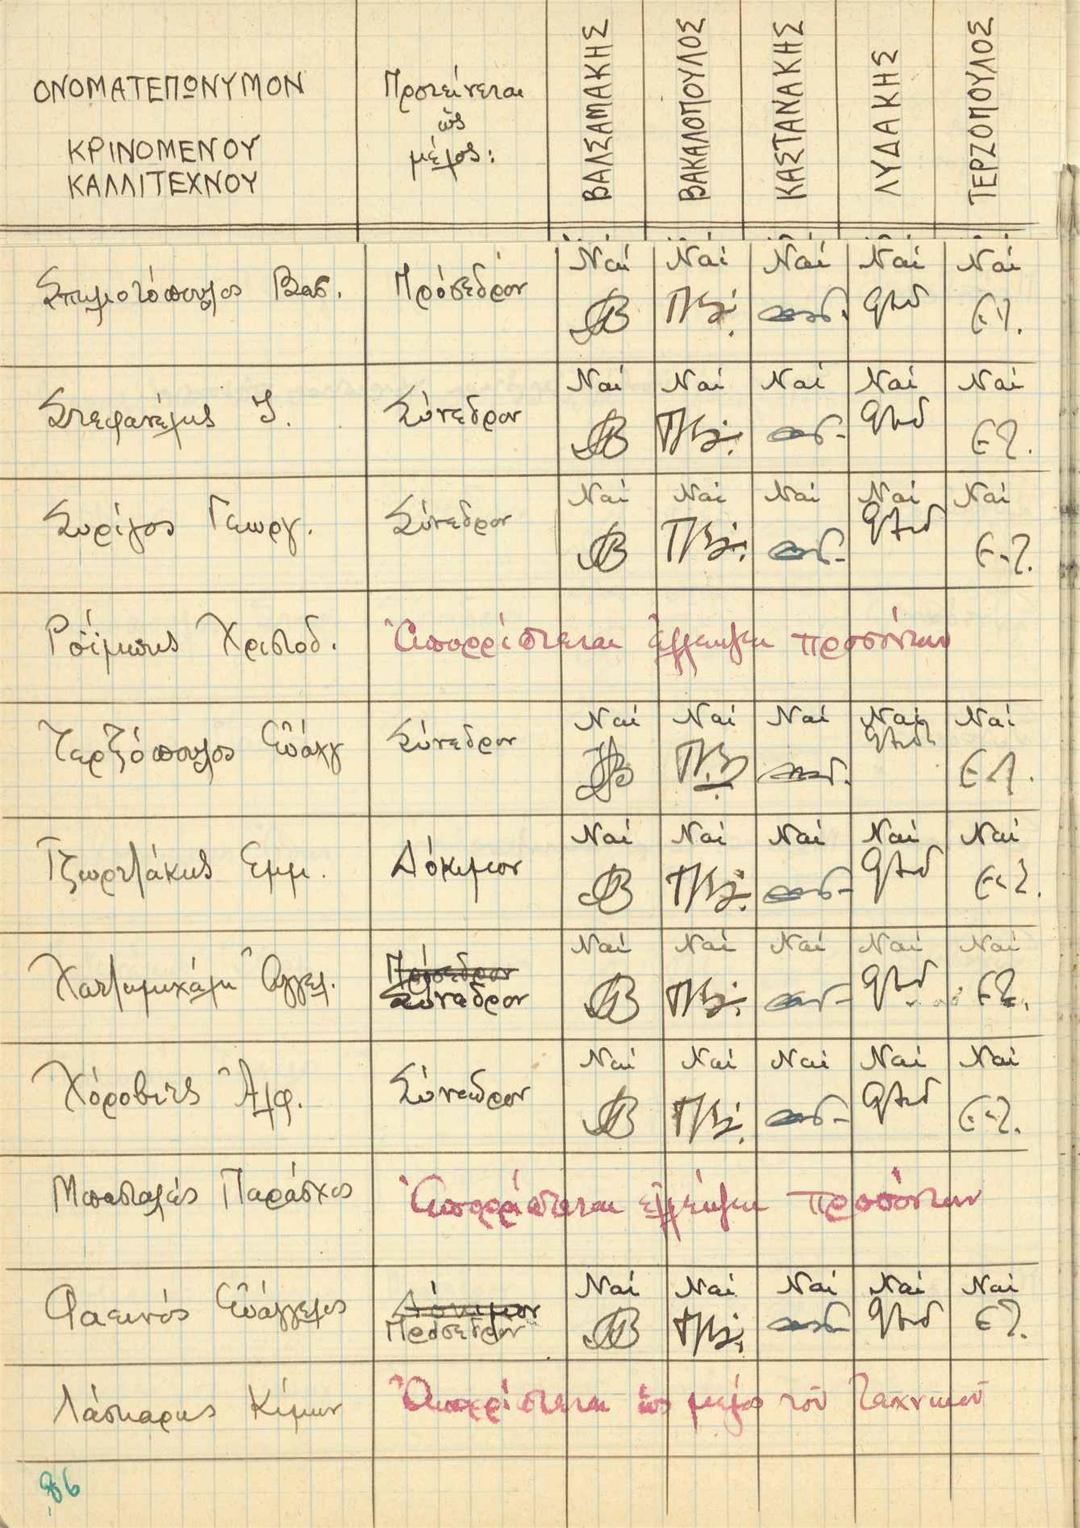 ΟΝΟΜΑΤΕΠΩΝΥΜΟΝ
ΚΡΙΝΟΜΕΝΟΥ
ΚΑΛΛΙΤΕΧΝΟΥ
Προτείνεται
ὡς
μέλος:
ΒΑΛΣΑΜΑΚΗΣ
ΒΑΚΑΛΟΠΟΥΛΟΣ
ΚΑΣΤΑΝΑΚΗΣ
ΛΥΔΑΚΗΣ
ΤΕΡΖΟΠΟΥΛΟΣ
Σπηλιοτόπουλος Βασ. Πρόσεδρον Ναί Ναί Ναί Ναί Ναί
Στεφανέλης Ι. Σύνεδρον Ναί Ναί Ναί Ναί Ναί
Συρίγος Γεωργ. Σύνεδρον Ναί Ναί Ναί Ναί Ναί
Χριστοδ. Ἀπορρίπτεται ἐλλείψει προσόντων
Τερζόπουλος Εὐάγγ Σύνεδρον Ναί Ναί Ναί Ναί Ναί
Τζωρτζάκης Εμμ. Δόκιμον Ναί Ναί Ναί Ναί Ναί
Χατζημιχάλη Ἀγγελ. Πρόσεδρον Ναί Ναί Ναί Ναί Ναί
Σύνεδρον
Χόροβιτς Ἀλφ. Σύνεδρον Ναί Ναί Ναί Ναί Ναί
Παράσχος Ἀπορρίπτεται ἐλλείψει προσόντων
Φαεινός Εὐάγγελος Δόκιμον Ναί Ναί Ναί Ναί Ναί
Πρόσεδρον
Λάσκαρης Κίμων Ἀπορρίπτεται ὡς μέλος τοῦ Τεχνικοῦ
86